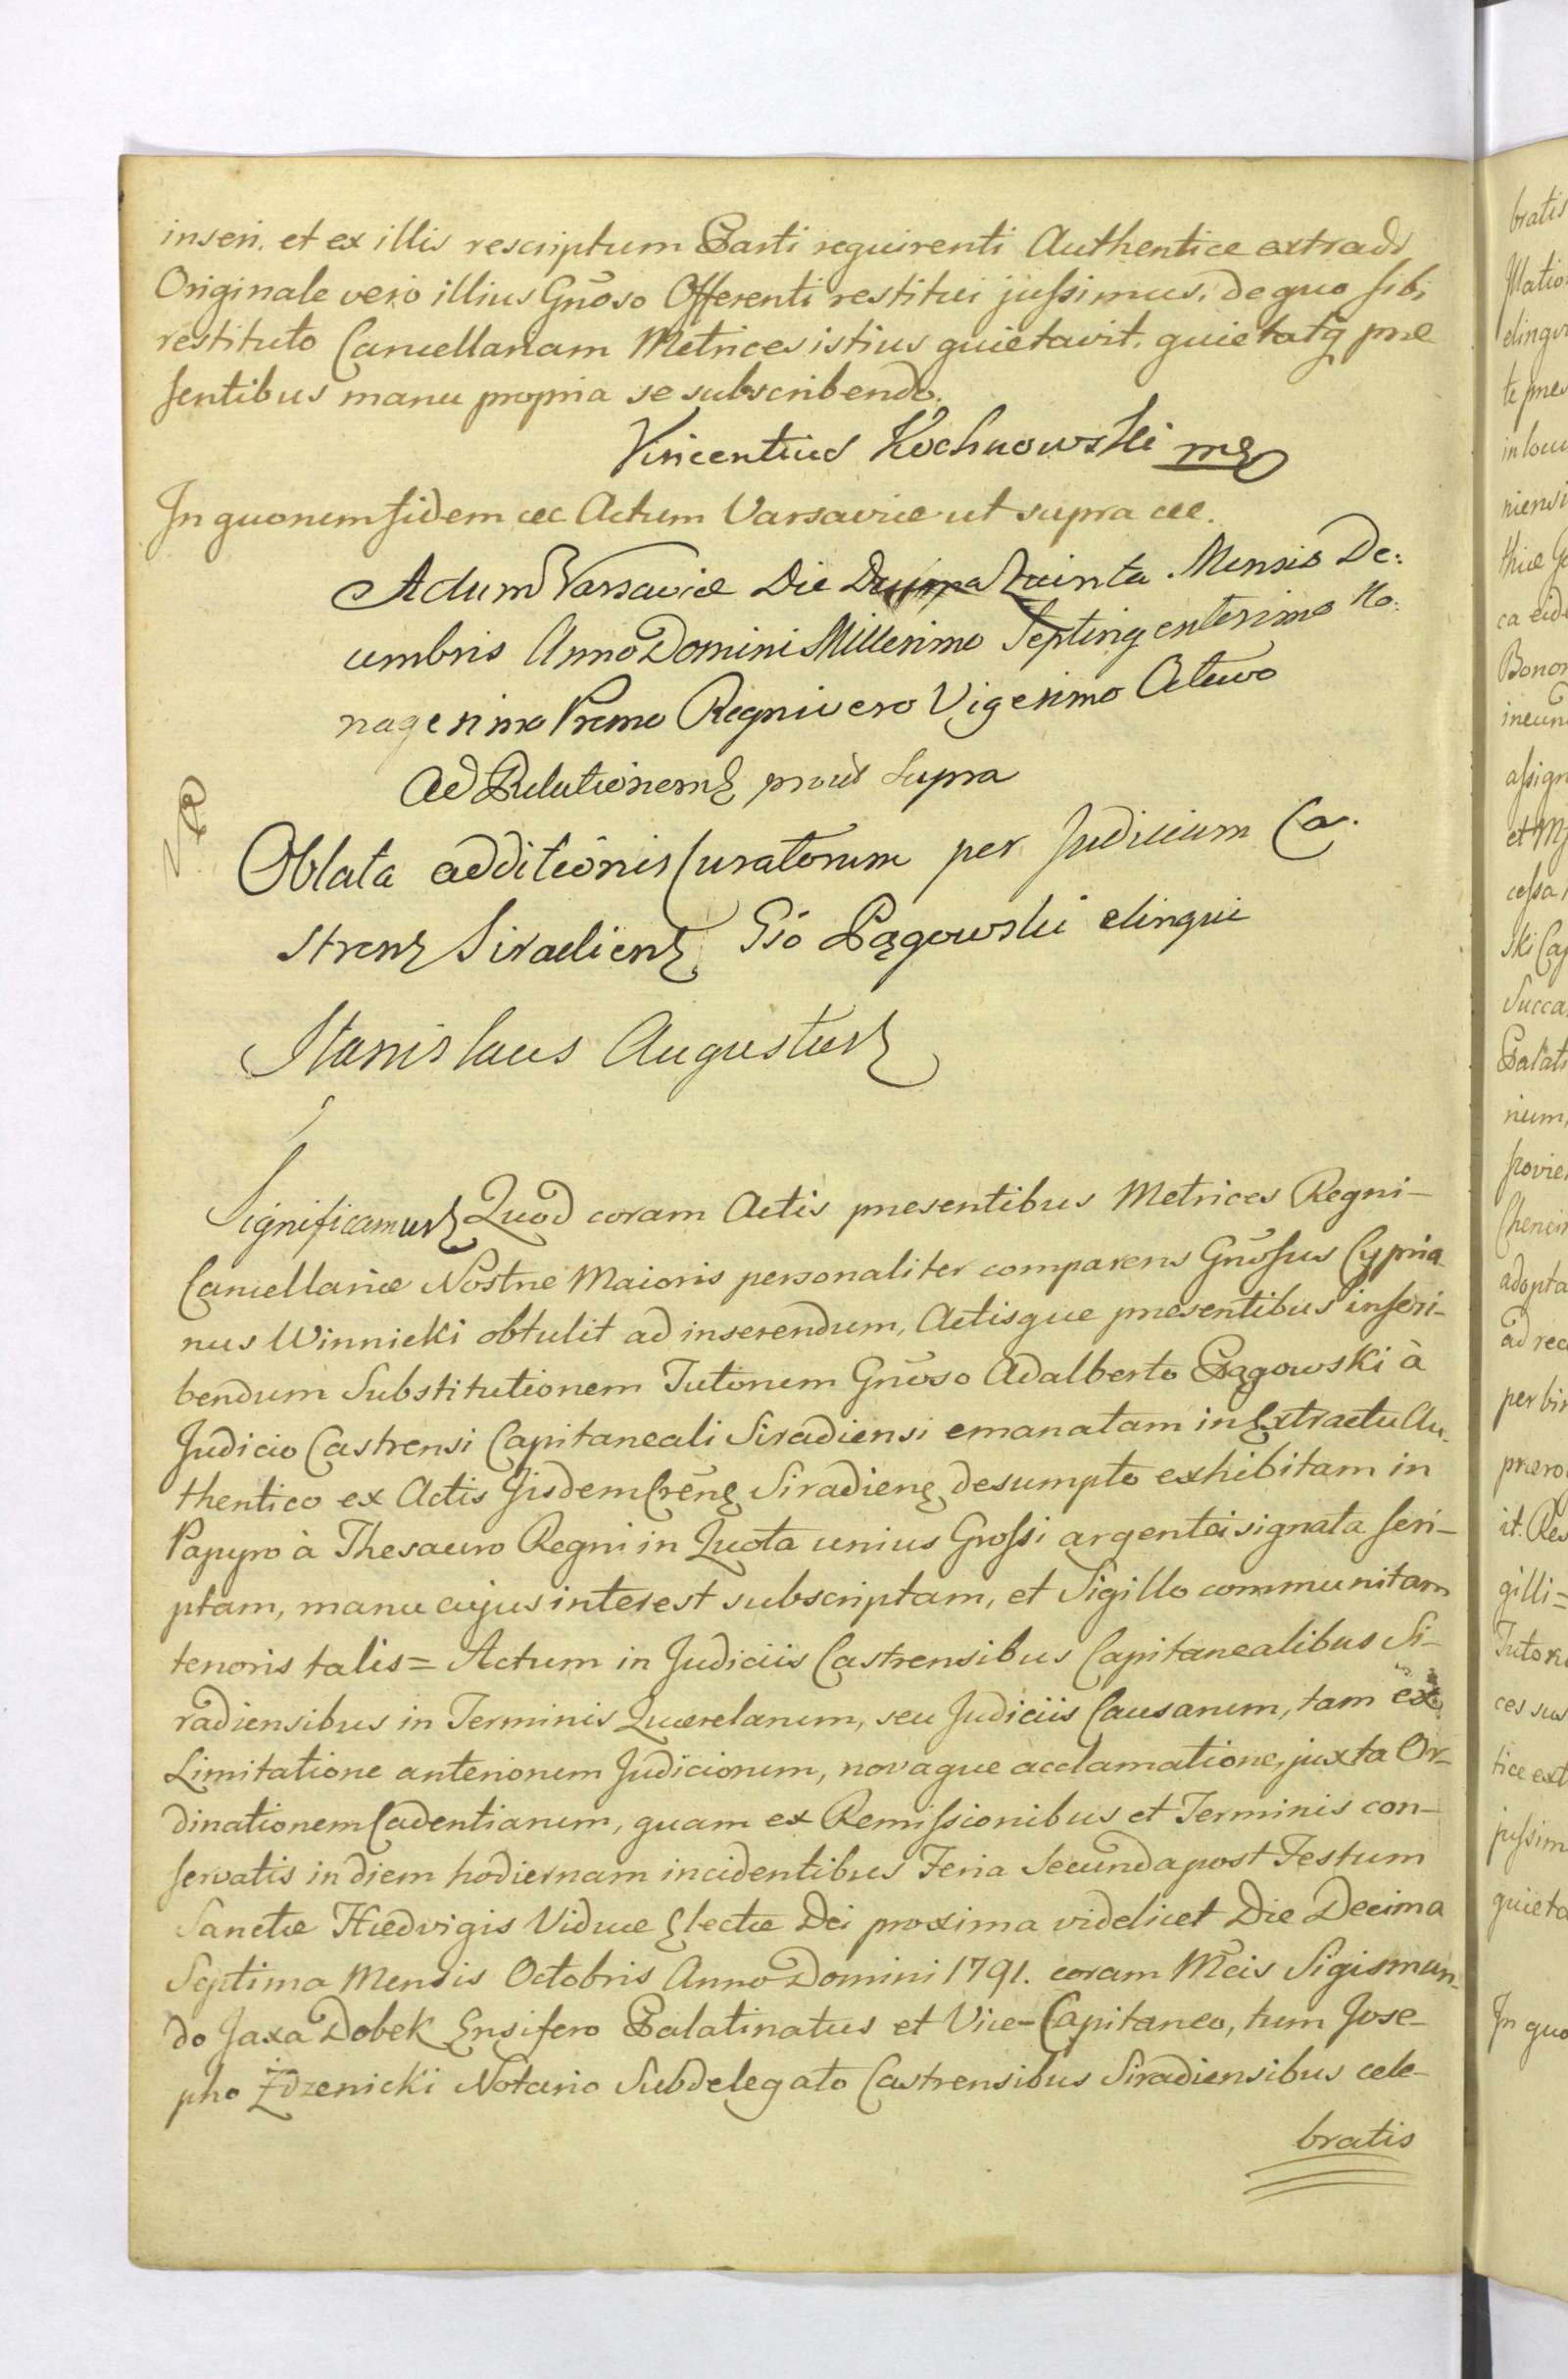 inseri, et ex illis rescriptum Parti requirenti Authentice extradi
Originale vero illius Gnoso Offerenti restitui jussimus, de quo sibi
restituto Cancellariam Metrices istius quietavit, quietatq prae
sentibus manu propria se subscribendo.
Vincentius Kochnowski mp
In quorum fidem etc Actum Varsaviae ut supra etc.
Actum Varsaviae Die Quinta Mensis De:
cembris Anno Domini Millesimo Septingentesimo No:
nagesimo Primo Regni vero Vigesimo Octavo
Ad Relationem prout supra
Oblata additionis Curatorum per Judicium Ca:
stren Siradien Gso Pągowski elingui
Stanislaus Augustus
Significamus Quod coram Actis praesentibus Metrices Regni-
Cancellariae Nostrae Maioris personaliter comparens Gnosus Cypria
nus Winnicki obtulit ad inserendum, Actisque praesentibus inscri-
bendum Substitutionem Tutorum Gnoso Adalberto Pągowski à
Judicio Castrensi Capitaneali Siradiensi emanatam in Extractu Au-
thentico ex Actis Iisdem Cren Siradien desumpto exhibitam in
Papyro à Thesauro Regni in Quota unius Grossi argentei signata scri-
ptam, manu cujus interest subscriptam, et Sigillo communitam
tenoris talis = Actum in Judiciis Castrensibus Capitanealibus Si-
radiensibus in Terminis Quaerelarum, seu Judiciis Causarum, tam ex
Limitatione anteriorum Judiciorum, novaque acclamatione, juxta Or-
dinationem Cadentiarum, quam ex Remissionibus et Terminis con-
servatis in diem hodiernam incidentibus Feria Secunda post Festum
Sanctae Haedvigis Viduae Electae Dei proxima videlicet Die Decima
Septima Mensis Octobris Anno Domini 1791. coram Mcis Sigismun-
do Jaxa Dobek Ensifero Palatinatus et Vice-Capitaneo, tum Jose-
pho Zdzenicki Notario Subdelegato Castrensibus Siradiensibus cele-
bratis